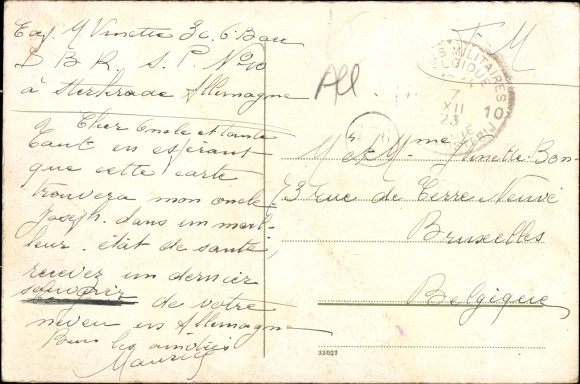 M Vinette 3c. 6 Bau
D B R. S. P. No 10
à Sterkrade Allemagne
Cher oncle et tante
Tout en espérant
que cette carte
trouvera mon oncle
Joseph. dans un meil-
leur. état de santé,
recevez un dernier
souvenir de votre
neveu en Allemagne
Bons les amitiés
Maurice
F M
All
POSTES MILITAIRES
BELGIQUE
7
XII
23
10
M et Mme Vinette-Bon-
73 rue de Terre Neuve
Bruxelles
Belgique